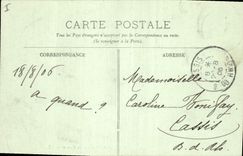 CARTE POSTALE
Tous les Pays étrangers n'acceptent pas la Correspondance au recto
(Se renseigner à la Poste)
CORRESPONDANCE
ADRESSE
18/8/06
a quand ?
Mademoiselle
Caroline
Cassis
B. d. Rh.